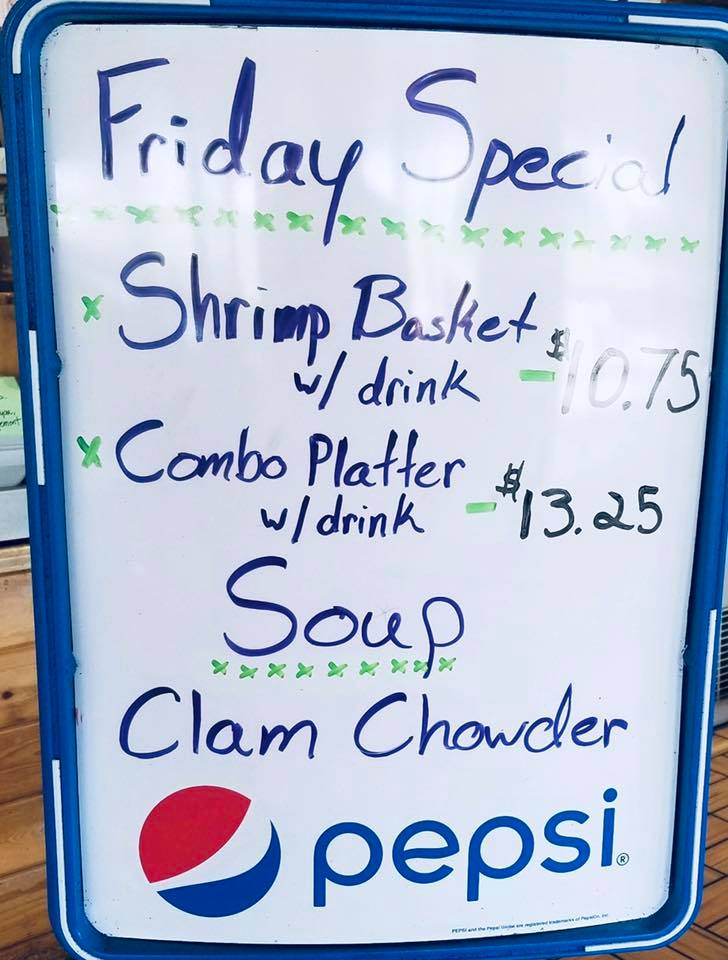 Friday Special
x Shrimp Basket
w/ drink - $10.75
x Combo Platter
w/ drink - $13.25
Soup
Clam Chowder
pepsi®
PEPSI and the Pepsi Globe are registered trademarks of PepsiCo, Inc.